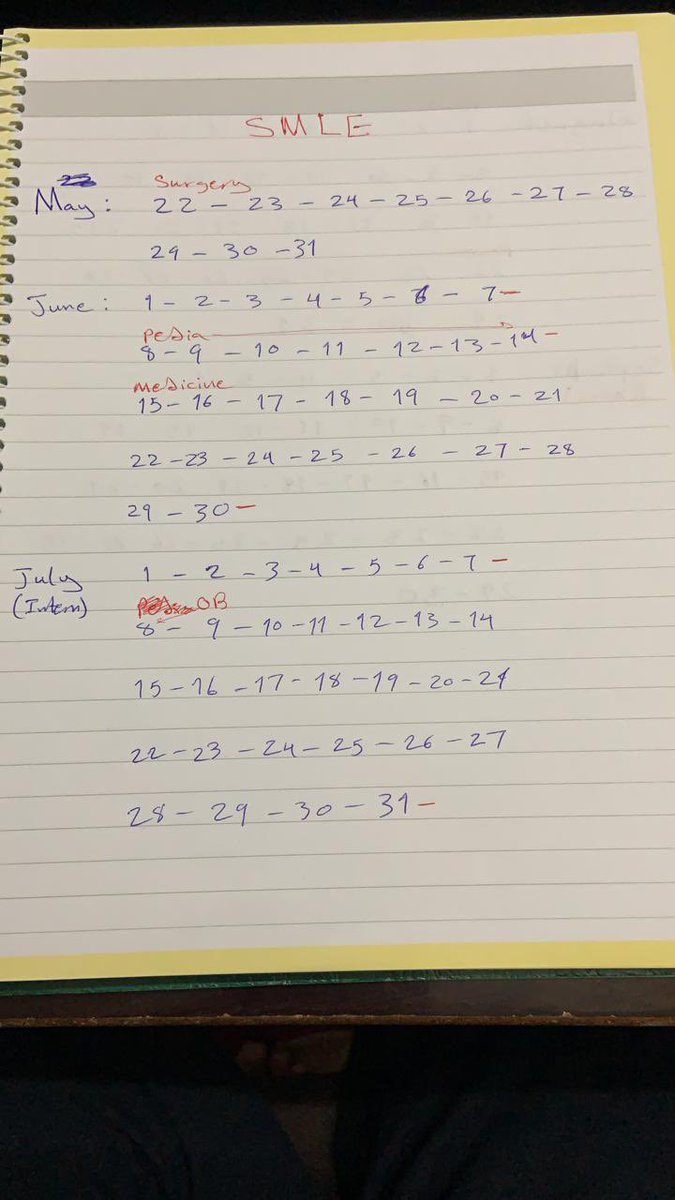 SMLE
Surgery
May: 22 - 23 - 24 - 25 - 26 - 27 - 28
29 - 30 - 31
June: 1 - 2 - 3 - 4 - 5 - 6 - 7 -
Pedia
8 - 9 - 10 - 11 - 12 - 13 - 14 -
Medicine
15 - 16 - 17 - 18 - 19 - 20 - 21
22 - 23 - 24 - 25 - 26 - 27 - 28
29 - 30 -
July 1 - 2 - 3 - 4 - 5 - 6 - 7 -
(Intern) OB
8 - 9 - 10 - 11 - 12 - 13 - 14
15 - 16 - 17 - 18 - 19 - 20 - 21
22 - 23 - 24 - 25 - 26 - 27
28 - 29 - 30 - 31 -